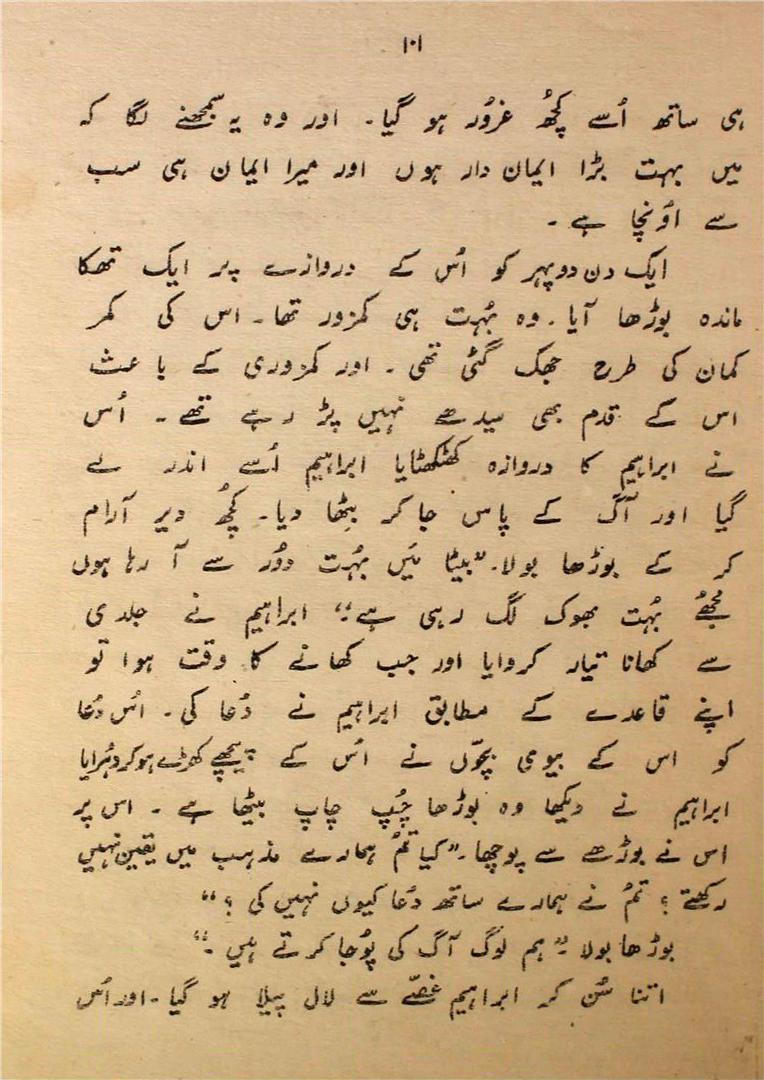 ۱۰۱
ہی ساتھ اُسے کچھُ غرُور ہو گیا۔ اور وہ یہ سمجھنے لگا کہ
میں بہت بڑا ایمان دار ہوں اور میرا ایمان ہی سب
سے اوُنچا ہے ۔
ایک دن دوپہر کو اُس کے دروازے پر ایک تھکا
ماندہ بوُڑھا آیا۔ وہ بہُت ہی کمزور تھا۔ اس کی کمر
کمان کی طرح جھک گئی تھی ۔ اور کمزوری کے باعث
اس کے قدم بھی سیدھے نہیں پڑ رہے تھے ۔ اُس
نے ابراہیم کا دروازہ کھٹکھٹایا ابراہیم اُسے اندر لے
گیا اور آگ کے پاس جا کر بِٹھا دیا۔ کچھُ دیر آرام
کر کے بوُڑھا بولا۔ ”بیٹا مَیں بہُت دوُر سے آ رہا ہوں
مجھُے بہُت بھوک لگ رہی ہے“ ابراہیم نے جلدی
سے کھانا تیار کروایا اور جب کھانے کا وقت ہوا تو
اپنے قاعدے کے مطابق ابراہیم نے دُعا کی۔ اُس دُعا
کو اس کے بیوی بچّوں نے اُس کے پیچھے کھڑے ہو کر دہُرایا
ابراہیم نے دیکھا وہ بوُڑھا چُپ چاپ بیٹھا ہے ۔ اس پر
اس نے بوُڑھے سے پوچھا۔ ”کیا تمُ ہمارے مذہب میں یقین نہیں
رکھتے ؟ تمُ نے ہمارے ساتھ دُعا کیوں نہیں کی ؟“
بوُڑھا بولا۔ ”ہم لوگ آگ کی پوُجا کرتے ہیں ۔“
اتنا سُن کر ابراہیم غصّے سے لال پیلا ہو گیا ۔ اور اُس